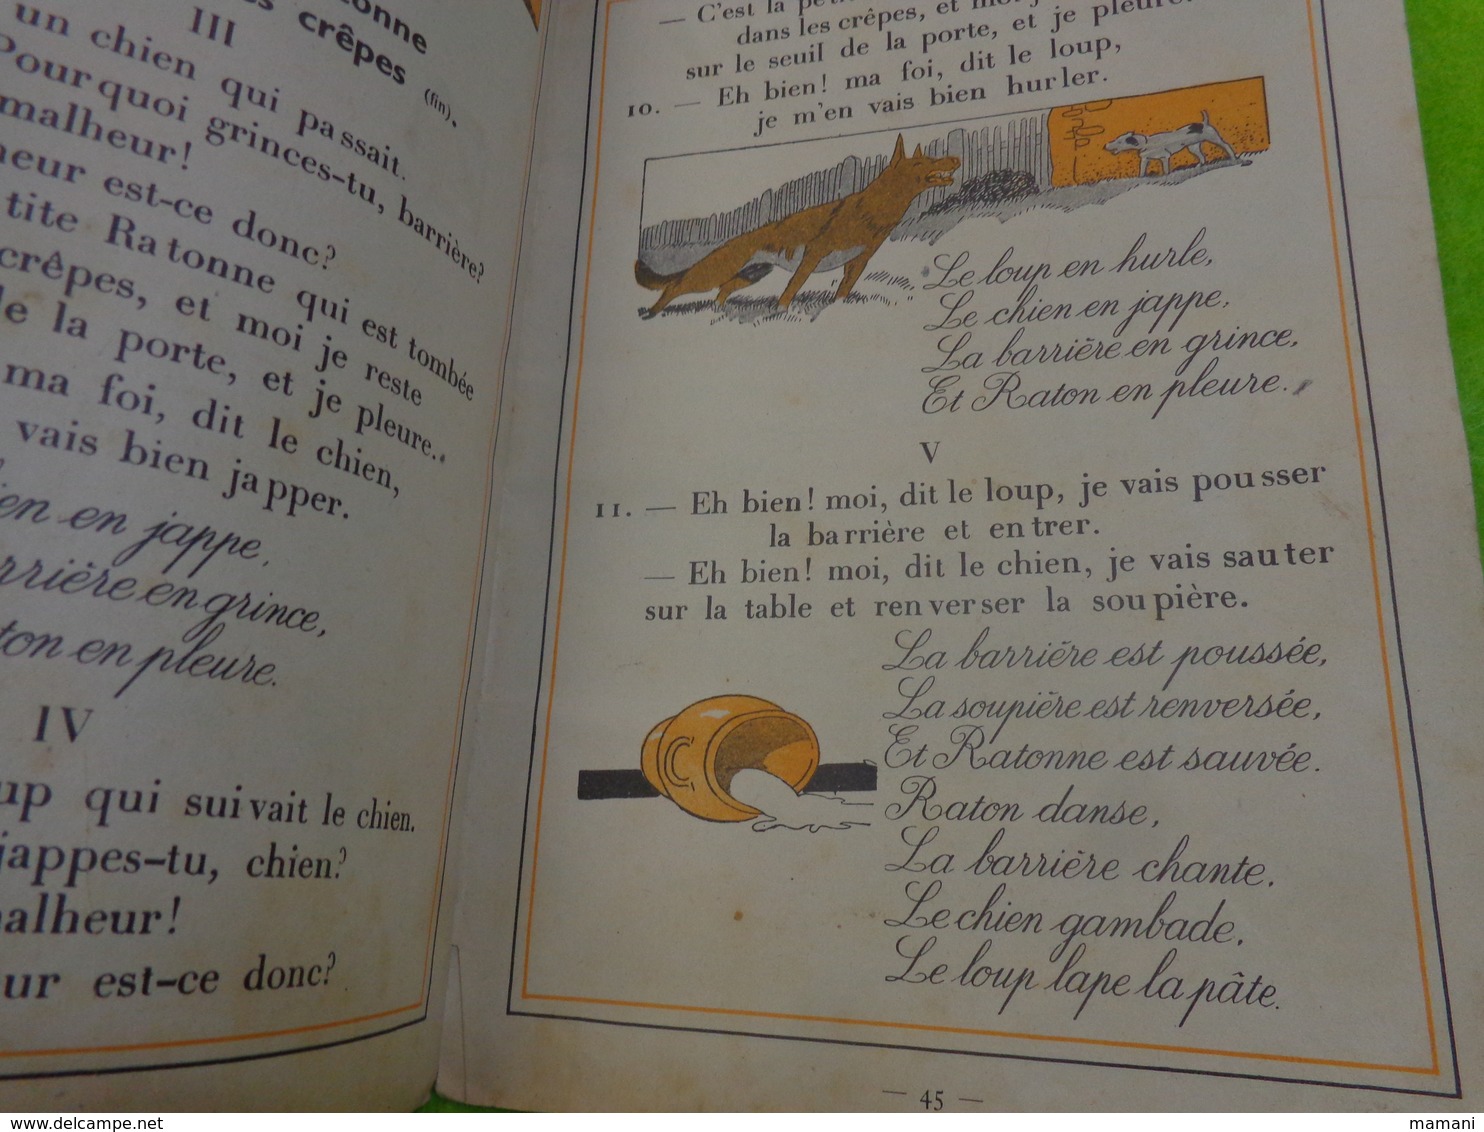 onne
es crêpes (fin).
III
un chien qui passait.
Pourquoi grinces-tu, barrière?
malheur!
heur est-ce donc?
tite Ratonne qui est tombée
crêpes, et moi je reste
le la porte, et je pleure..
ma foi, dit le chien,
vais bien japper.
en en jappe,
rrière en grince,
ton en pleure.
IV
up qui suivait le chien.
jappes-tu, chien?
alheur!
ur est-ce donc?
— C'est la
dans les crêpes, et moi j
sur le seuil de la porte, et je pleure.
10. — Eh bien! ma foi, dit le loup,
je m'en vais bien hurler.
Le loup en hurle,
Le chien en jappe,
La barrière en grince,
Et Raton en pleure.
V
11. — Eh bien! moi, dit le loup, je vais pousser
la barrière et entrer.
— Eh bien! moi, dit le chien, je vais sauter
sur la table et renverser la soupière.
La barrière est poussée,
La soupière est renversée,
Et Ratonne est sauvée.
Raton danse,
La barrière chante.
Le chien gambade,
Le loup lape la pâte.
— 45 —
mamani